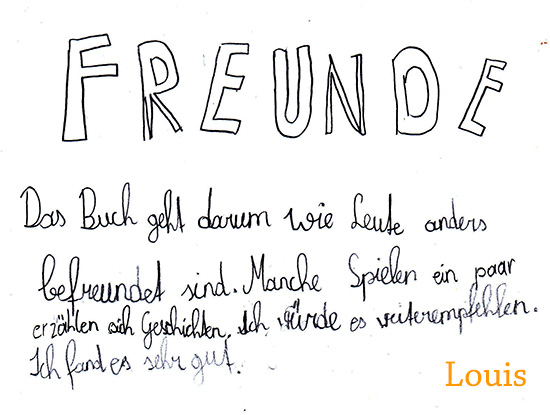 FREUNDE
Das Buch geht darum wie Leute anders
befreundet sind. Manche Spielen ein paar
erzählen sich Geschichten. Ich würde es weiterempfehlen.
Ich fand es sehr gut.
Louis